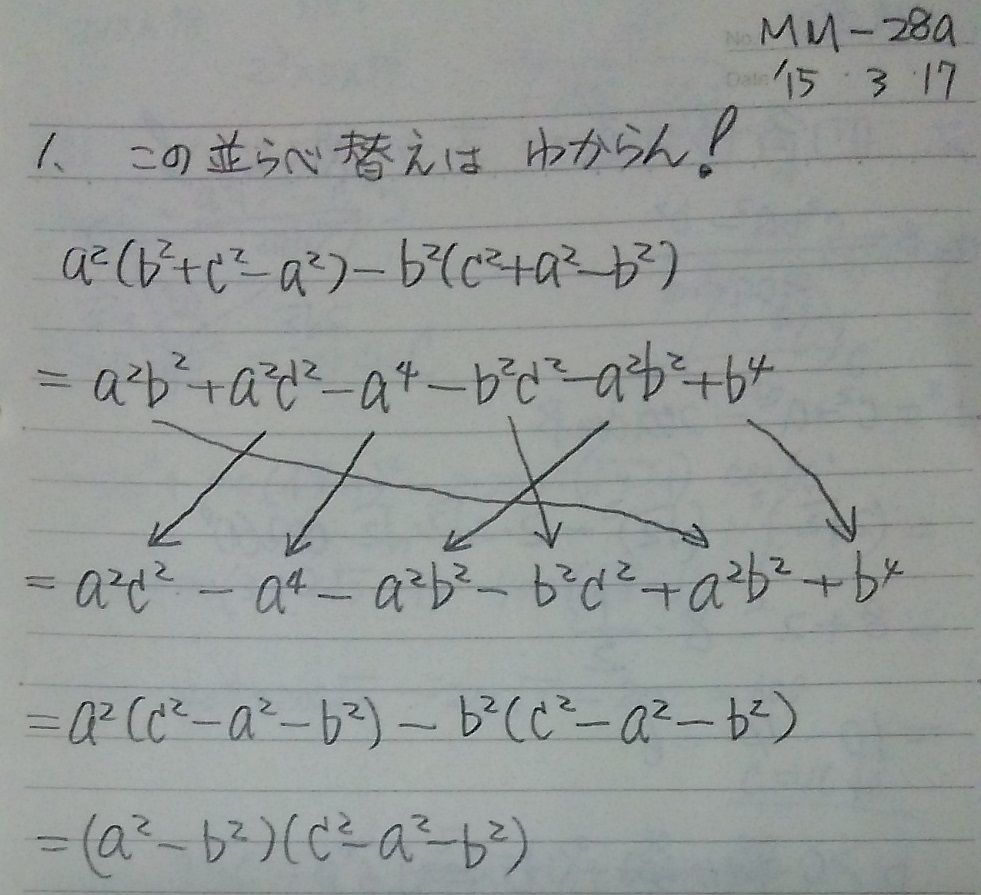 No. MM-28a
Date '15 3 17
1. この並らべ替えは わからん!
a²(b²+c²-a²)-b²(c²+a²-b²)
= a²b²+a²c²-a⁴-b²c²-a²b²+b⁴
= a²c² - a⁴ - a²b² - b²c² + a²b² + b⁴
= a²(c²-a²-b²) - b²(c²-a²-b²)
= (a²-b²)(c²-a²-b²)